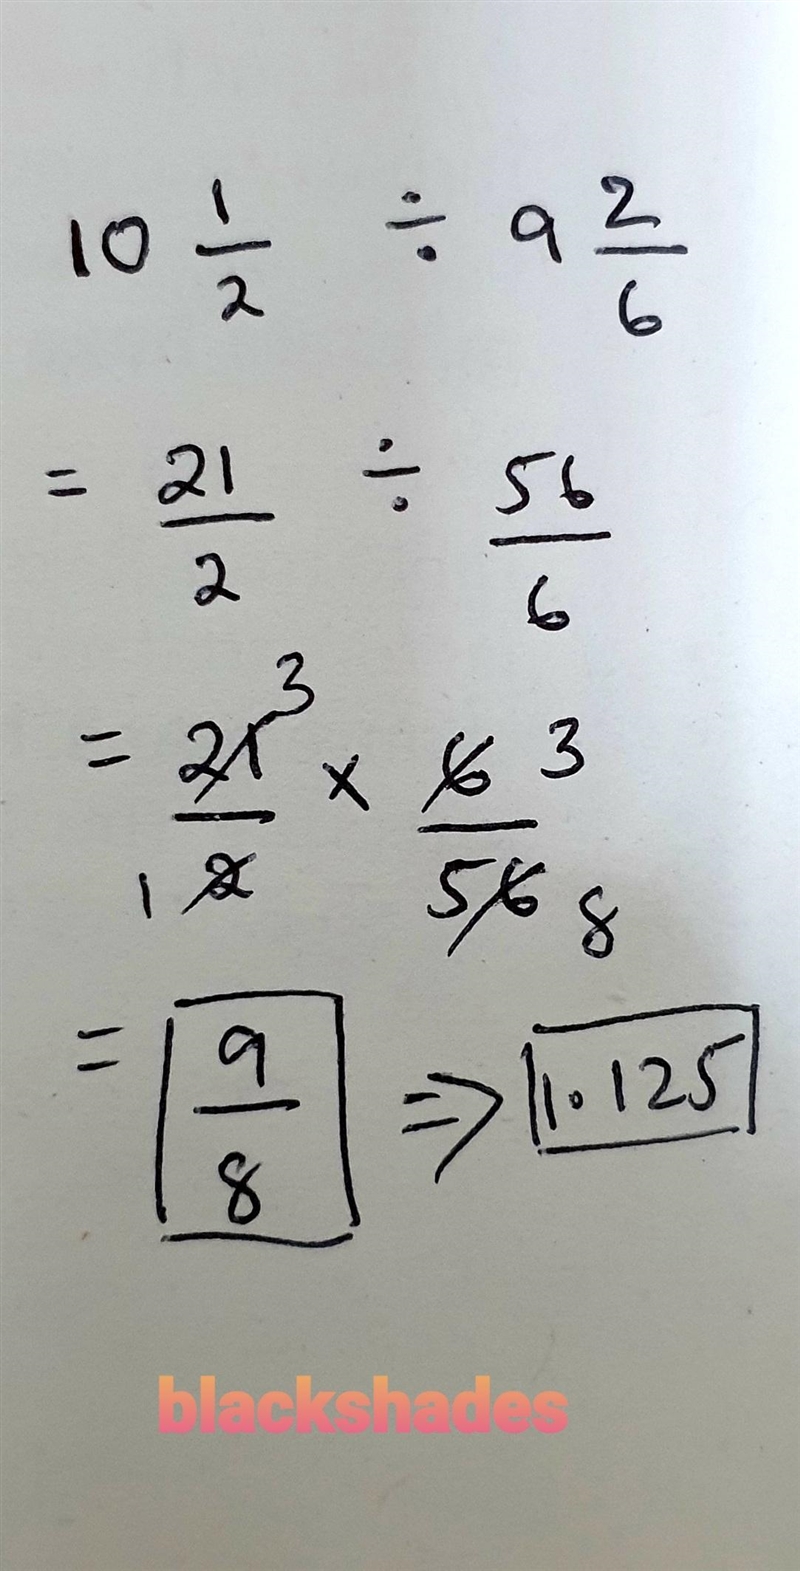 10 1/2 ÷ 9 2/6
= 21/2 ÷ 56/6
= 21/2 3 1 × 6/56 3 8
= 9/8 ⇒ 1.125
blackshades